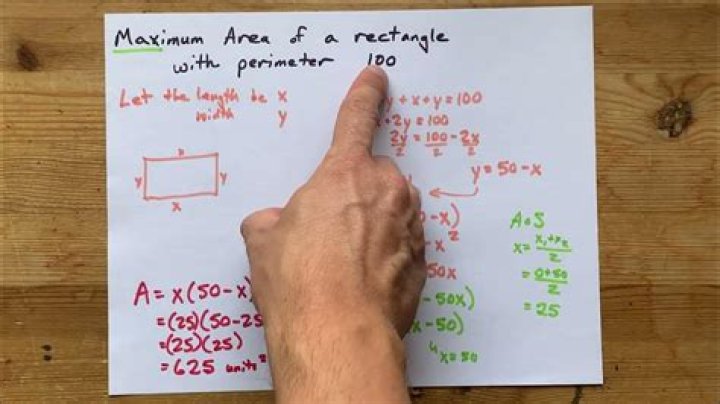 Maximum Area of a rectangle
with perimeter 100
Let the length be x
width y
y + x + y = 100
+ 2y = 100
2y = 100 - 2x
2 2 2
y = 50 - x
x
y y
x
- x)
- x²
50x
- 50x)
x - 50)
x = 50
A = x(50 - x)
= (25)(50 - 25
= (25)(25)
= 625 units²
x = x₁ + x₂
2
= 0 + 50
2
= 25